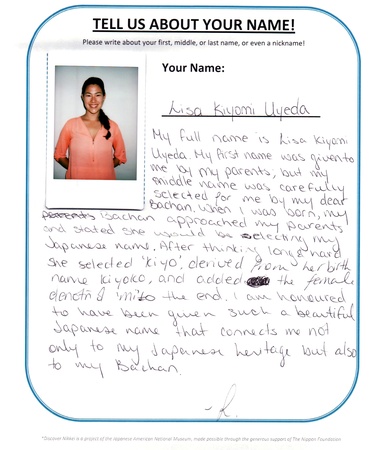 TELL US ABOUT YOUR NAME!
Please write about your first, middle, or last name, or even a nickname!
Your Name:
Lisa Kiyomi Uyeda
My full name is Lisa Kiyomi
Uyeda. My first name was given to
me by my parents, but my
middle name was carefully
selected for me by my dear
Bachan. When I was born, my
parents Bachan approached my parents
and stated she would be selecting my
Japanese name. After thinking long & hard
she selected 'Kiyo', derived from her birth
name Kiyoko, and added the female
'mi' to the end. I am honoured
to have been given such a beautiful
Japanese name that connects me not
only to my Japanese heritage but also
to my Bachan.
*Discover Nikkei is a project of the Japanese American National Museum, made possible through the generous support of The Nippon Foundation